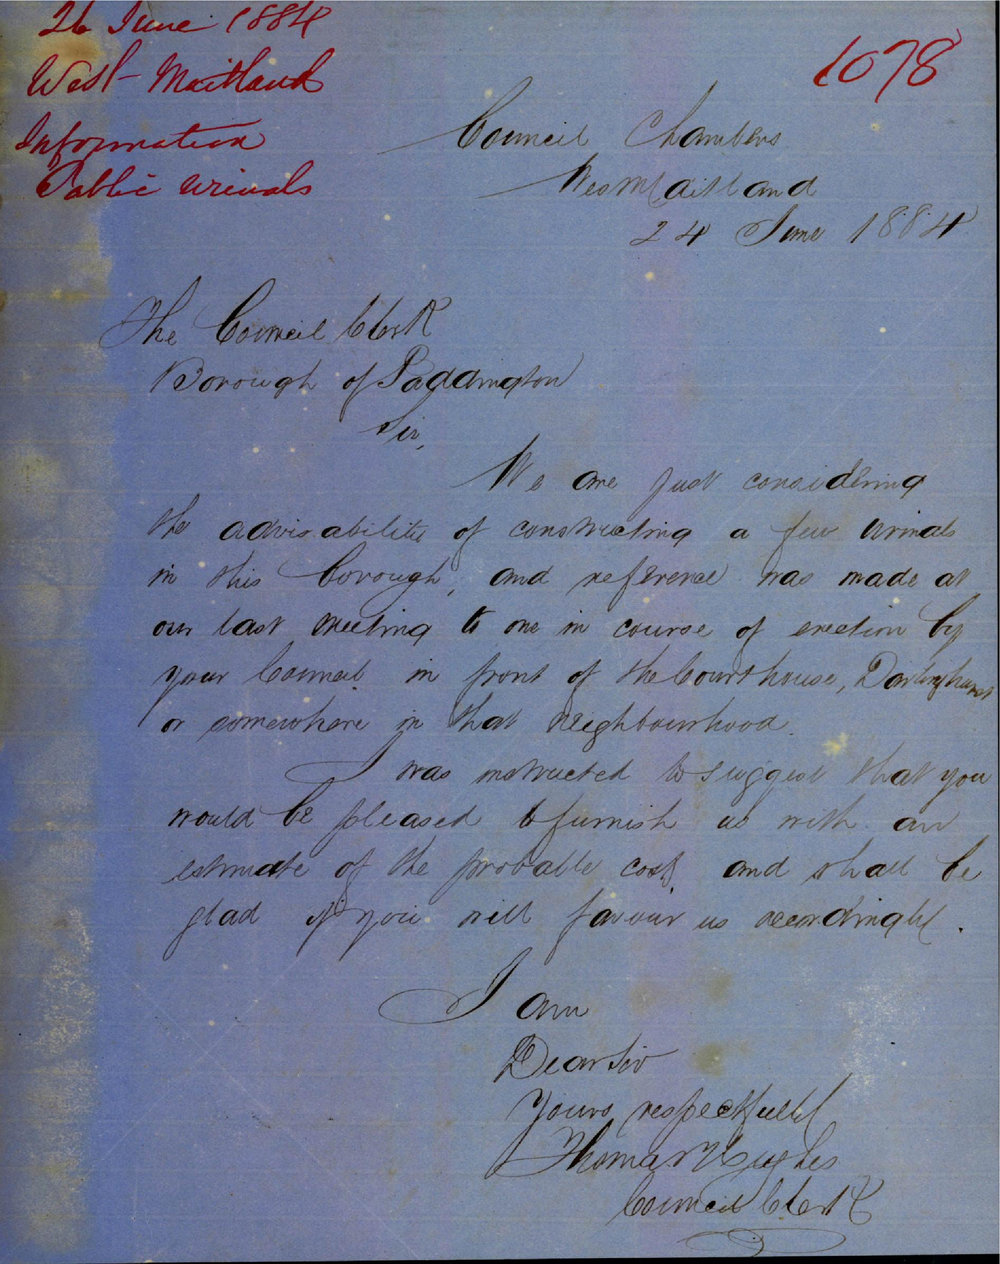 26 June 1884
West Maitland
Information
Public urinals
1078
Council Chambers
West Maitland
24 June 1884
The Council Clerk
Borough of Paddington
Sir,
We are just considering
the advisability of constructing a few urinals
in this borough, and reference was made at
our last meeting to one in course of erection by
your Council in front of the Courthouse, Darlinghurst
or somewhere in that neighbourhood.
I was instructed to suggest that you
would be pleased to furnish us with an
estimate of the probable cost and shall be
glad if you will favour us accordingly.
I am
Dear Sir
Yours respectfully
Thomas Hughes
Council Clerk